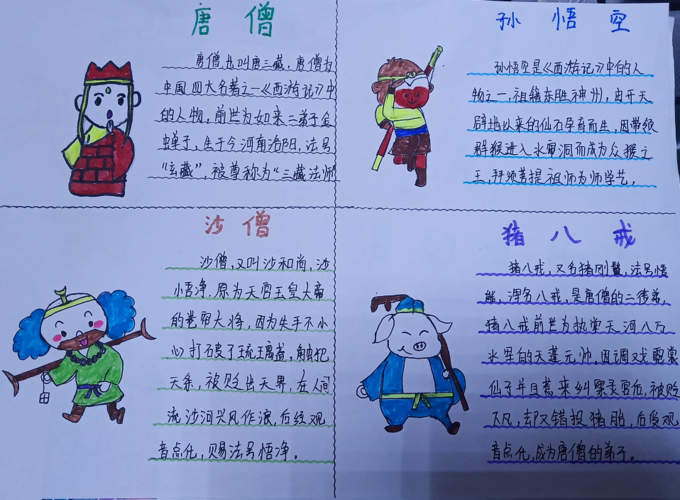 唐僧
唐僧也叫唐三藏，唐僧为
中国四大名著之一《西游记》中的
的人物，前世为如来二弟子金
蝉子，生于今河南洛阳，法号
“玄藏”，被尊称为“三藏法师
孙悟空
孙悟空是《西游记》中的人
物之一，祖籍东胜神州，由开天
辟地以来的仙石孕育而生，因带领
群猴进入水帘洞而成为众猴之
王，拜须菩提祖师为师学艺，
沙僧
沙僧，又叫沙和尚，沙
悟净，原为天宫玉皇大帝
的卷帘大将，因为失手不小
心打破了琉璃盏，触犯
天条，被贬出天界，在人间
流沙河兴风作浪，后经观
音点化，赐法号悟净。
猪八戒
猪八戒，又名猪刚鬣，法号悟
能，浑名八戒，是唐僧的二徒弟，
猪八戒前世为执掌天河八万
水军的天蓬元帅，因调戏霓裳
仙子并且惹来纠察灵官后，被贬
下凡，却又错投猪胎，后经观
音点化，成为唐僧的弟子。